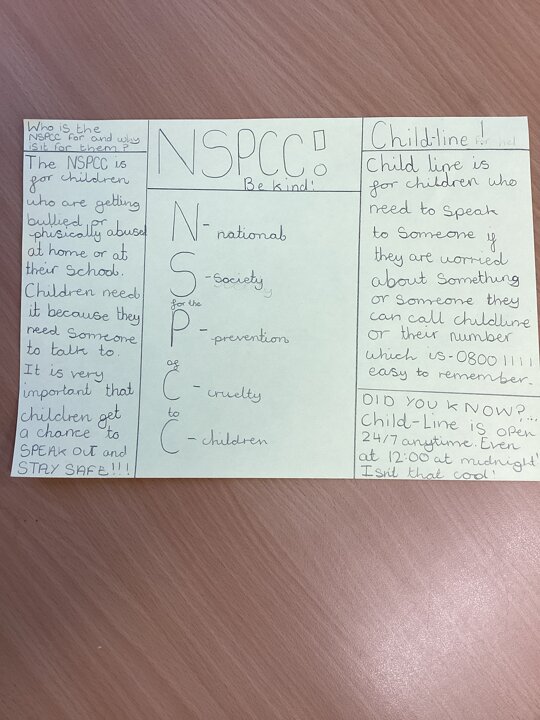 Who is the
NSPCC for and why
is it for them?
The NSPCC is
for children
who are getting
bullied or
phisically abused
at home or at
their school.
Children need
it because they
need someone
to talk to.
It is very
important that
children get
a chance to
SPEAK OUT and
STAY SAFE!!!
NSPCC!
Be kind!
N - national
S - society
for the
P - prevention
of
C - cruelty
to
C - children
Child-line!
Child line is
for children who
need to speak
to someone if
they are worried
about something
or someone they
can call childline
or their number
which is - 0800 1111
easy to remember.
DID YOU KNOW?...
Child-Line is open
24/7 anytime. Even
at 12:00 at midnight!
Isn't that cool!